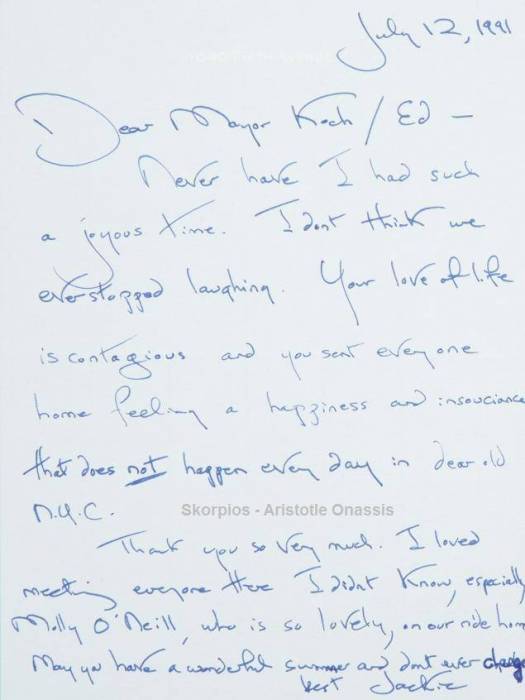 July 12, 1991
Dear Mayor Koch / Ed —
Never have I had such
a joyous time. I dont think we
ever stopped laughing. Your love of life
is contagious and you sent everyone
home feeling a happiness and insouciance
that does not happen every day in dear old
N.Y.C.
Skorpios - Aristotle Onassis
Thank you so very much. I loved
meeting everyone there I didnt know, especially
Molly O'Neill, who is so lovely, on our ride home
May you have a wonderful summer and dont ever change
best Jackie